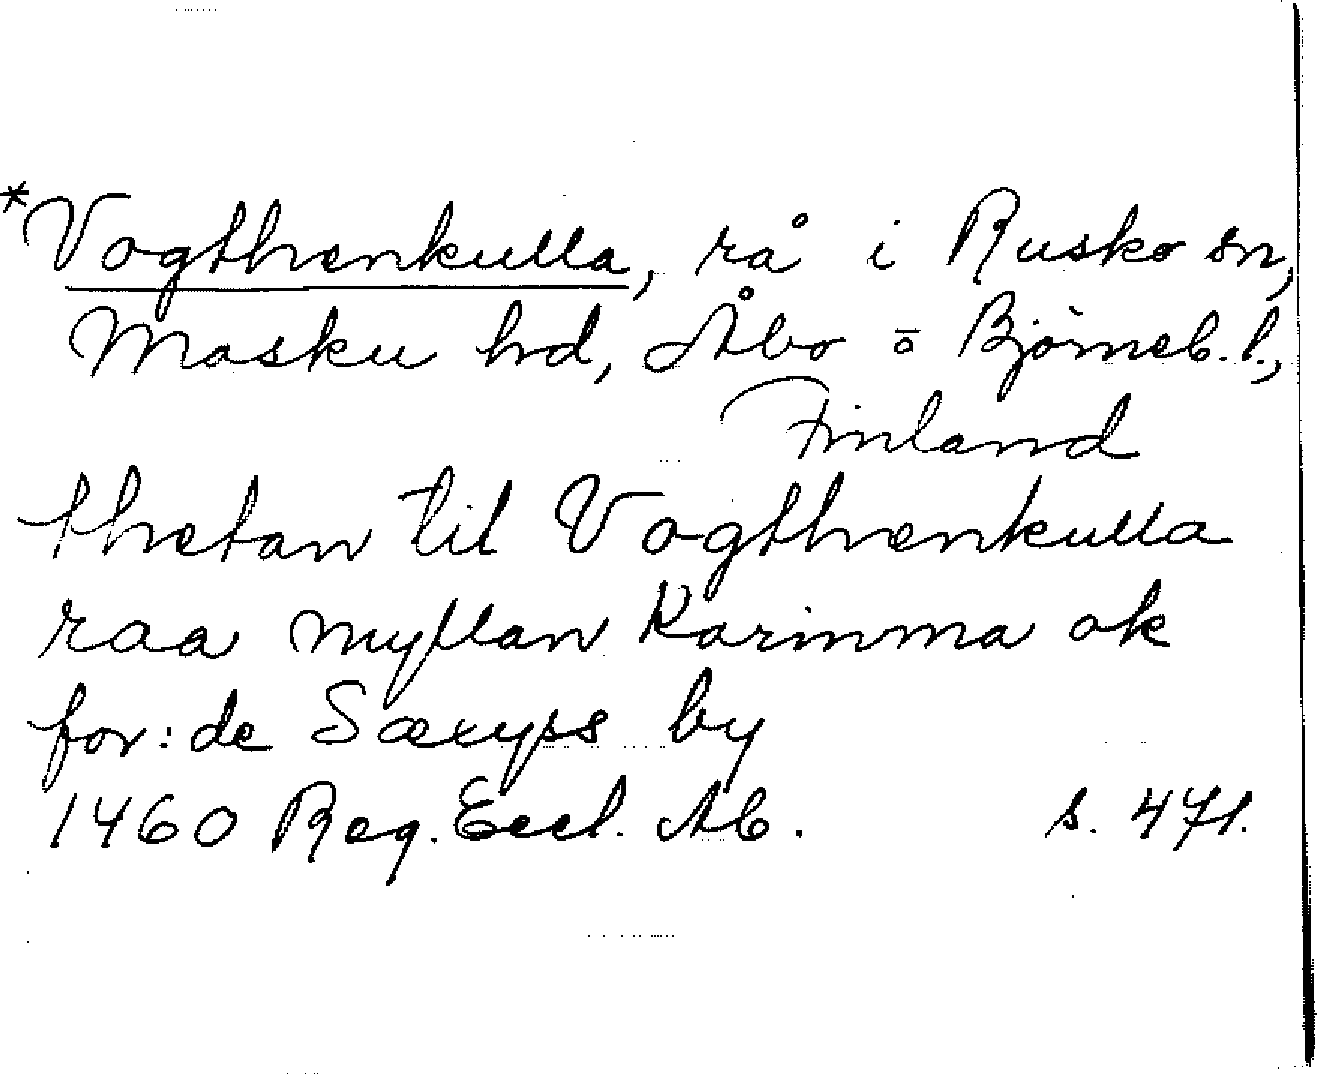 *Vogthenkulla, rå i Rusko sn,
Masku hd, Åbo o Björneb. l.,
Finland
thetan til Vogthenkulla
raa myllan Karinma ok
for: de Sæxyss by
1460 Reg. Eccl. Ab. s. 471.